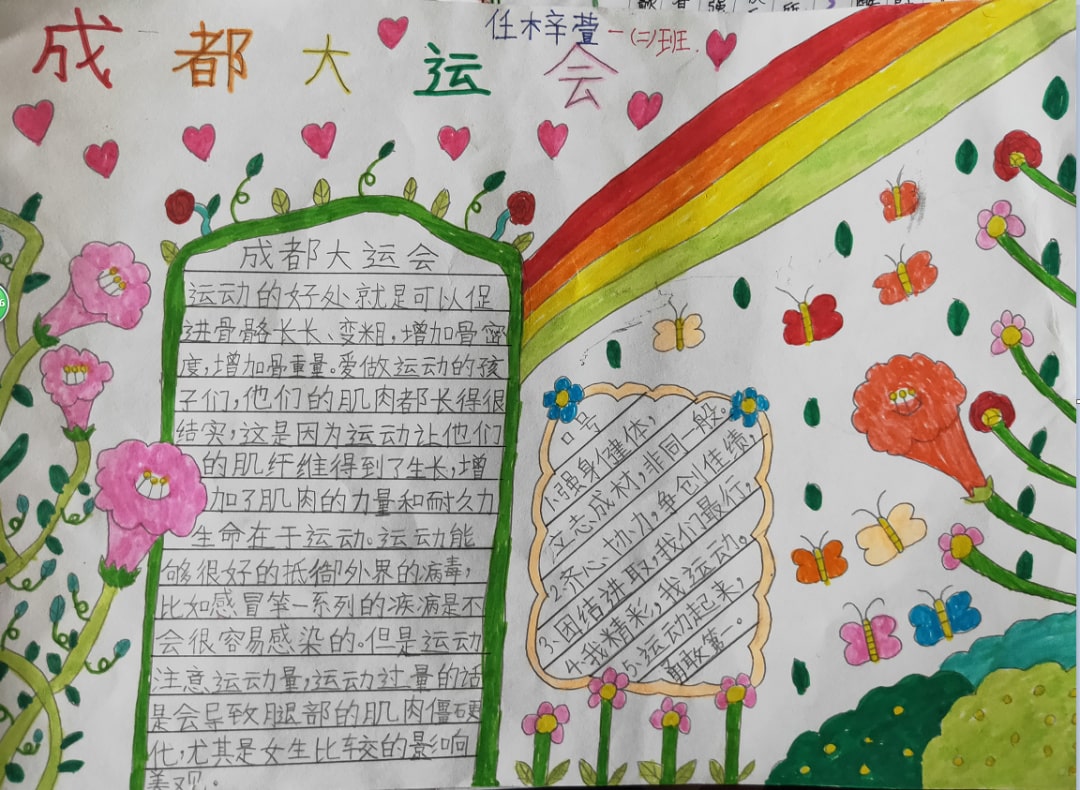 成都大运会
任梓萱一(二)班.
成都大运会
运动的好处就是可以促
进骨骼长长、变粗,增加骨密
度,增加骨重量。爱做运动的孩
子们,他们的肌肉都长得很
结实,这是因为运动让他们
的肌纤维得到了生长,增
加了肌肉的力量和耐久力
生命在于运动。运动能
够很好的抵御外界的病毒,
比如感冒第一系列的疾病是不
会很容易感染的。但是运动
注意运动量,运动过量的话
是会导致腿部的肌肉僵硬
化,尤其是女生比较的影响
美观。
口号
1.强身健体,
立志成材,非同一般。
2.齐心协力,争创佳绩,
3.团结进取,我们最行,
4.我精彩,我运动。
5.运动起来,
勇敢第一。